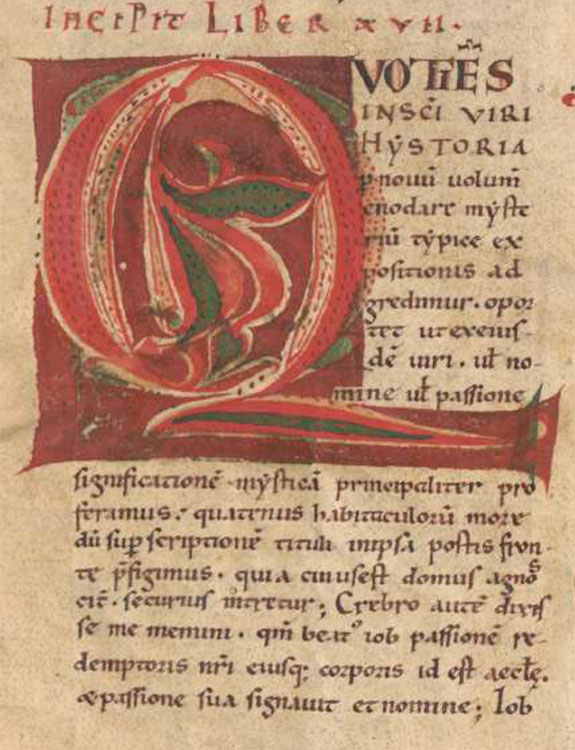 Incipit Liber xvii.
QVOTIE̅S
IN SCI̅ VIRI
HẏSTORIA
p nouu̅ uolum̅
enodare mẏste
riu̅ tẏpice ex
positionis ad
gredimur. opor
tet ut ex eius-
de̅ uiri. ul̅ no-
mine ul̅ passione
significatione̅ mẏstica̅ principaliter pro
feramus: quatenus habitaculoru̅ more
du̅ sup̱ scriptione̅ tituli in ipsa postis fron-
te p̅figimus. quia cuius est domus agnos
cit̅. securius intretur; Crebro aute̅ dixis
se me memini. qm̅ beat᾽ iob passione̅ re-
demptoris nr̅i eiusq; corporis id est aeccłę.
& passione sua signauit et nomine; Iob